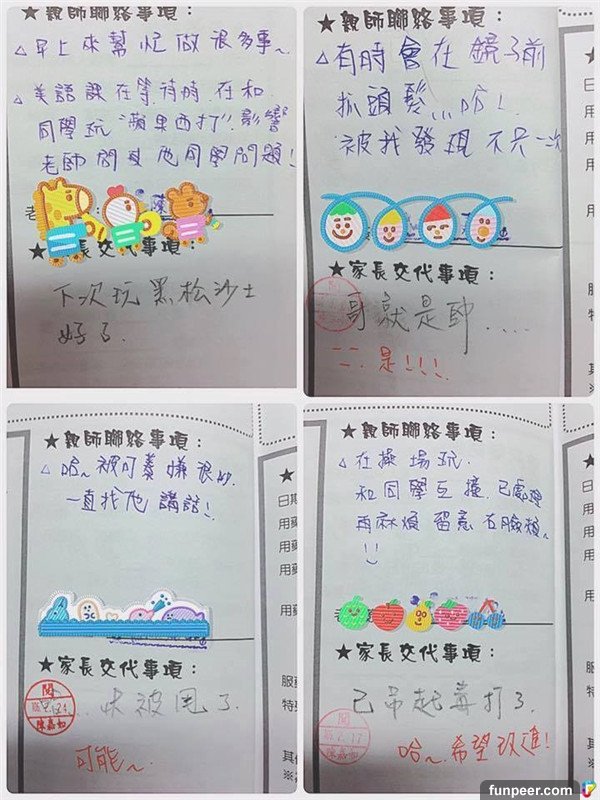 ★親師聯絡事項：
△早上來幫忙做很多事~
△美語課在等待時 在和
同學玩"蘋果西打" 影響
老師問其他同學問題!
老
★家長交代事項：
下次玩黑松沙士
好了.
★親師聯絡事項：
△有時會在鏡子前
抓頭髮,,,哈!
被我發現不只一次
★家長交代事項：
閱
哥就是帥....
是!!!
★親師聯絡事項：
△哈~被可蓁嫌很吵.
一直找他講話!
★家長交代事項：
閱
陳嘉如
...快被甩了
可能~
★親師聯絡事項：
△在操場玩.
和同學互撞.已處理
再麻煩留意右臉頰~
!!
★家長交代事項：
閱
已吊起毒打了.
哈~希望改進!
★
日期
用藥
用藥
用藥
服藥
特殊
其他
※
funpeer.com